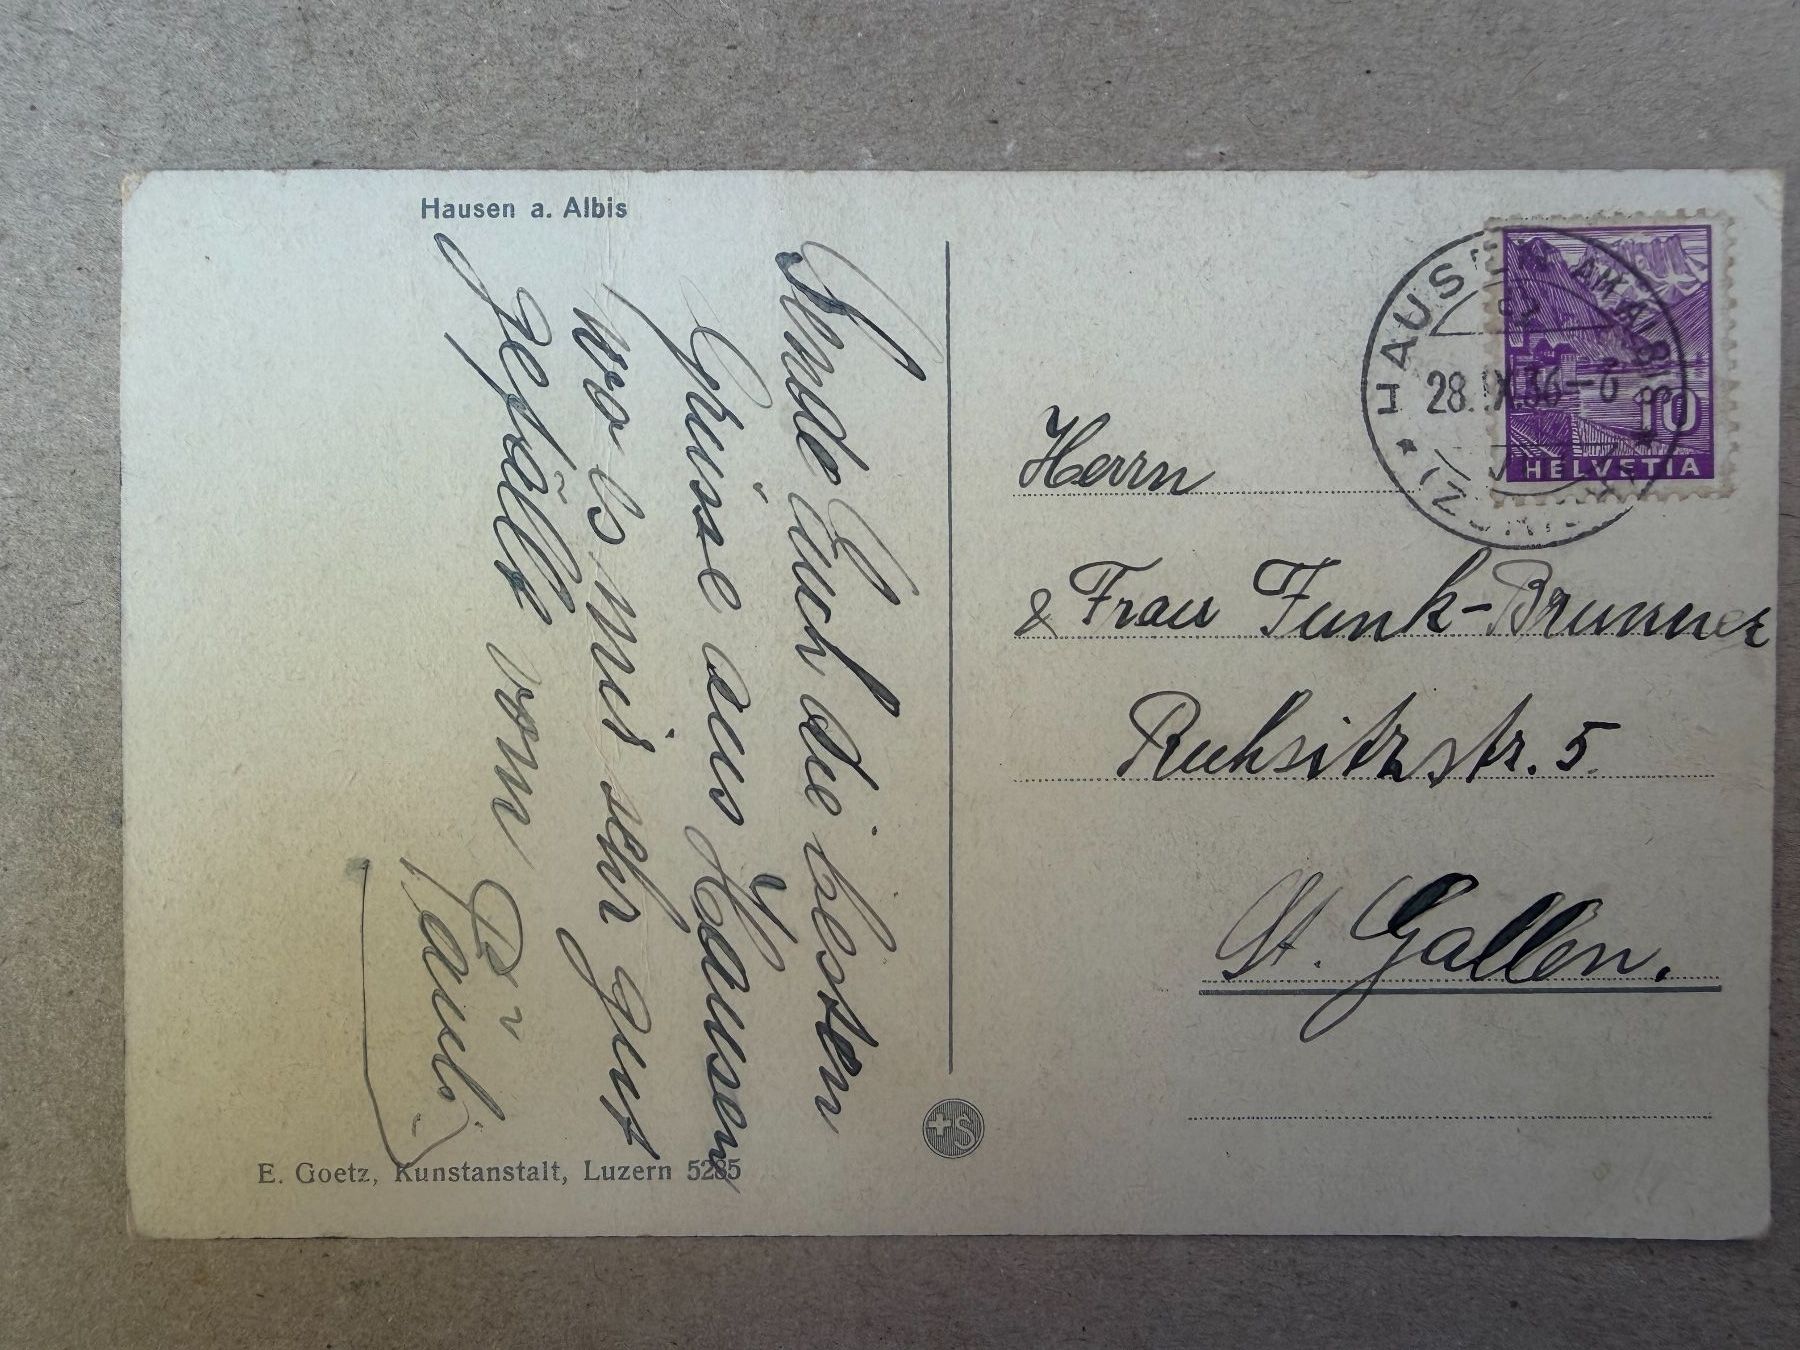 Hausen a. Albis
Sende Euch die besten
Grüsse aus Hausen
wo es mir sehr gut
gefällt vom
Pauli
E. Goetz, Kunstanstalt, Luzern 5285
+S
HAUSEN AM ALBIS
28.IX.36-
(ZÜRICH)
10
HELVETIA
Herrn
& Frau Funk-Brunner
Ruhsitzstr. 5
St. Gallen.